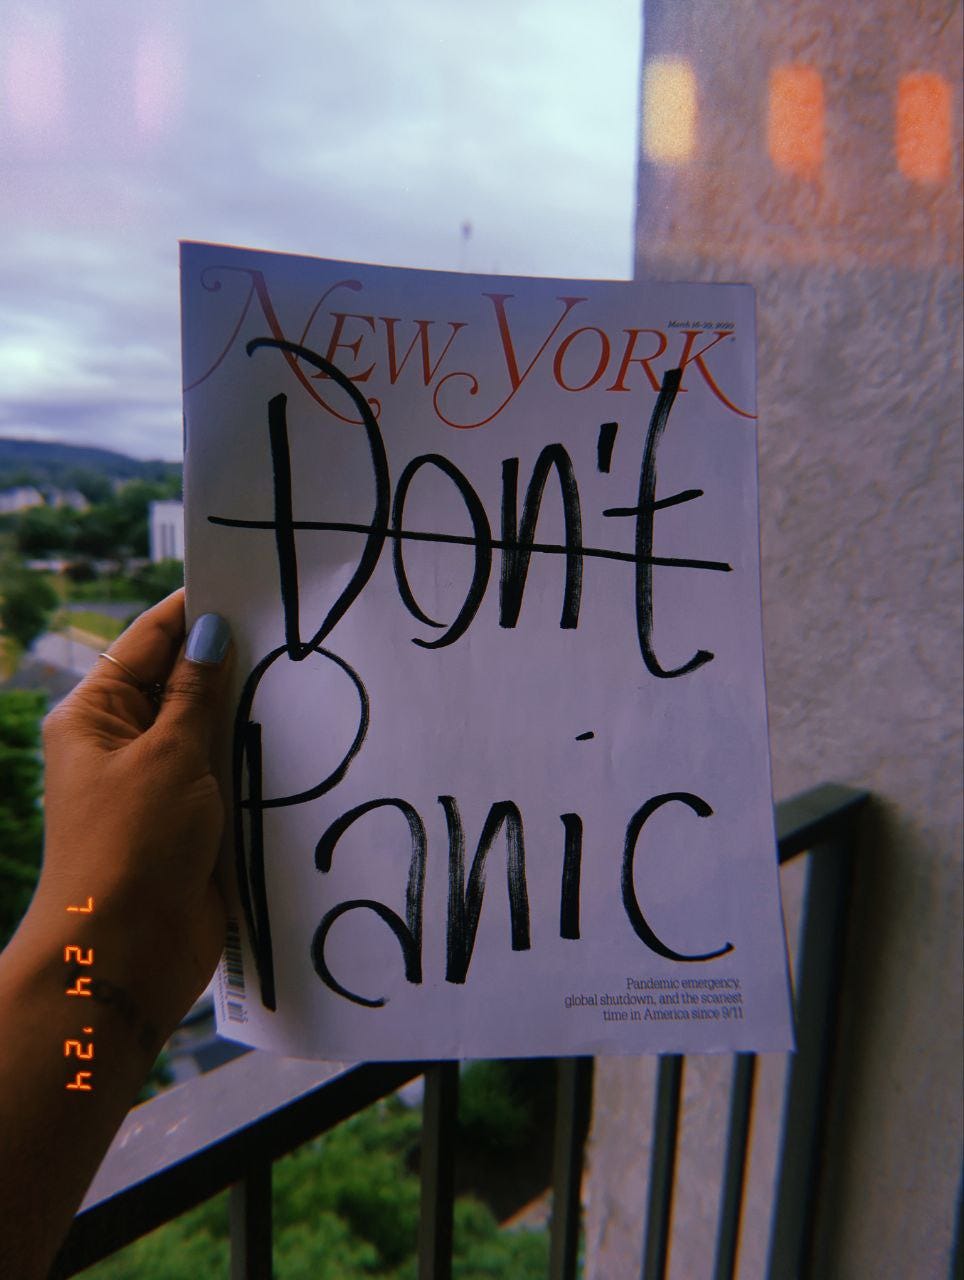 NEW YORK
March 16–29, 2020
Don't
Panic
Pandemic emergency,
global shutdown, and the scariest
time in America since 9/11
7 24 '24